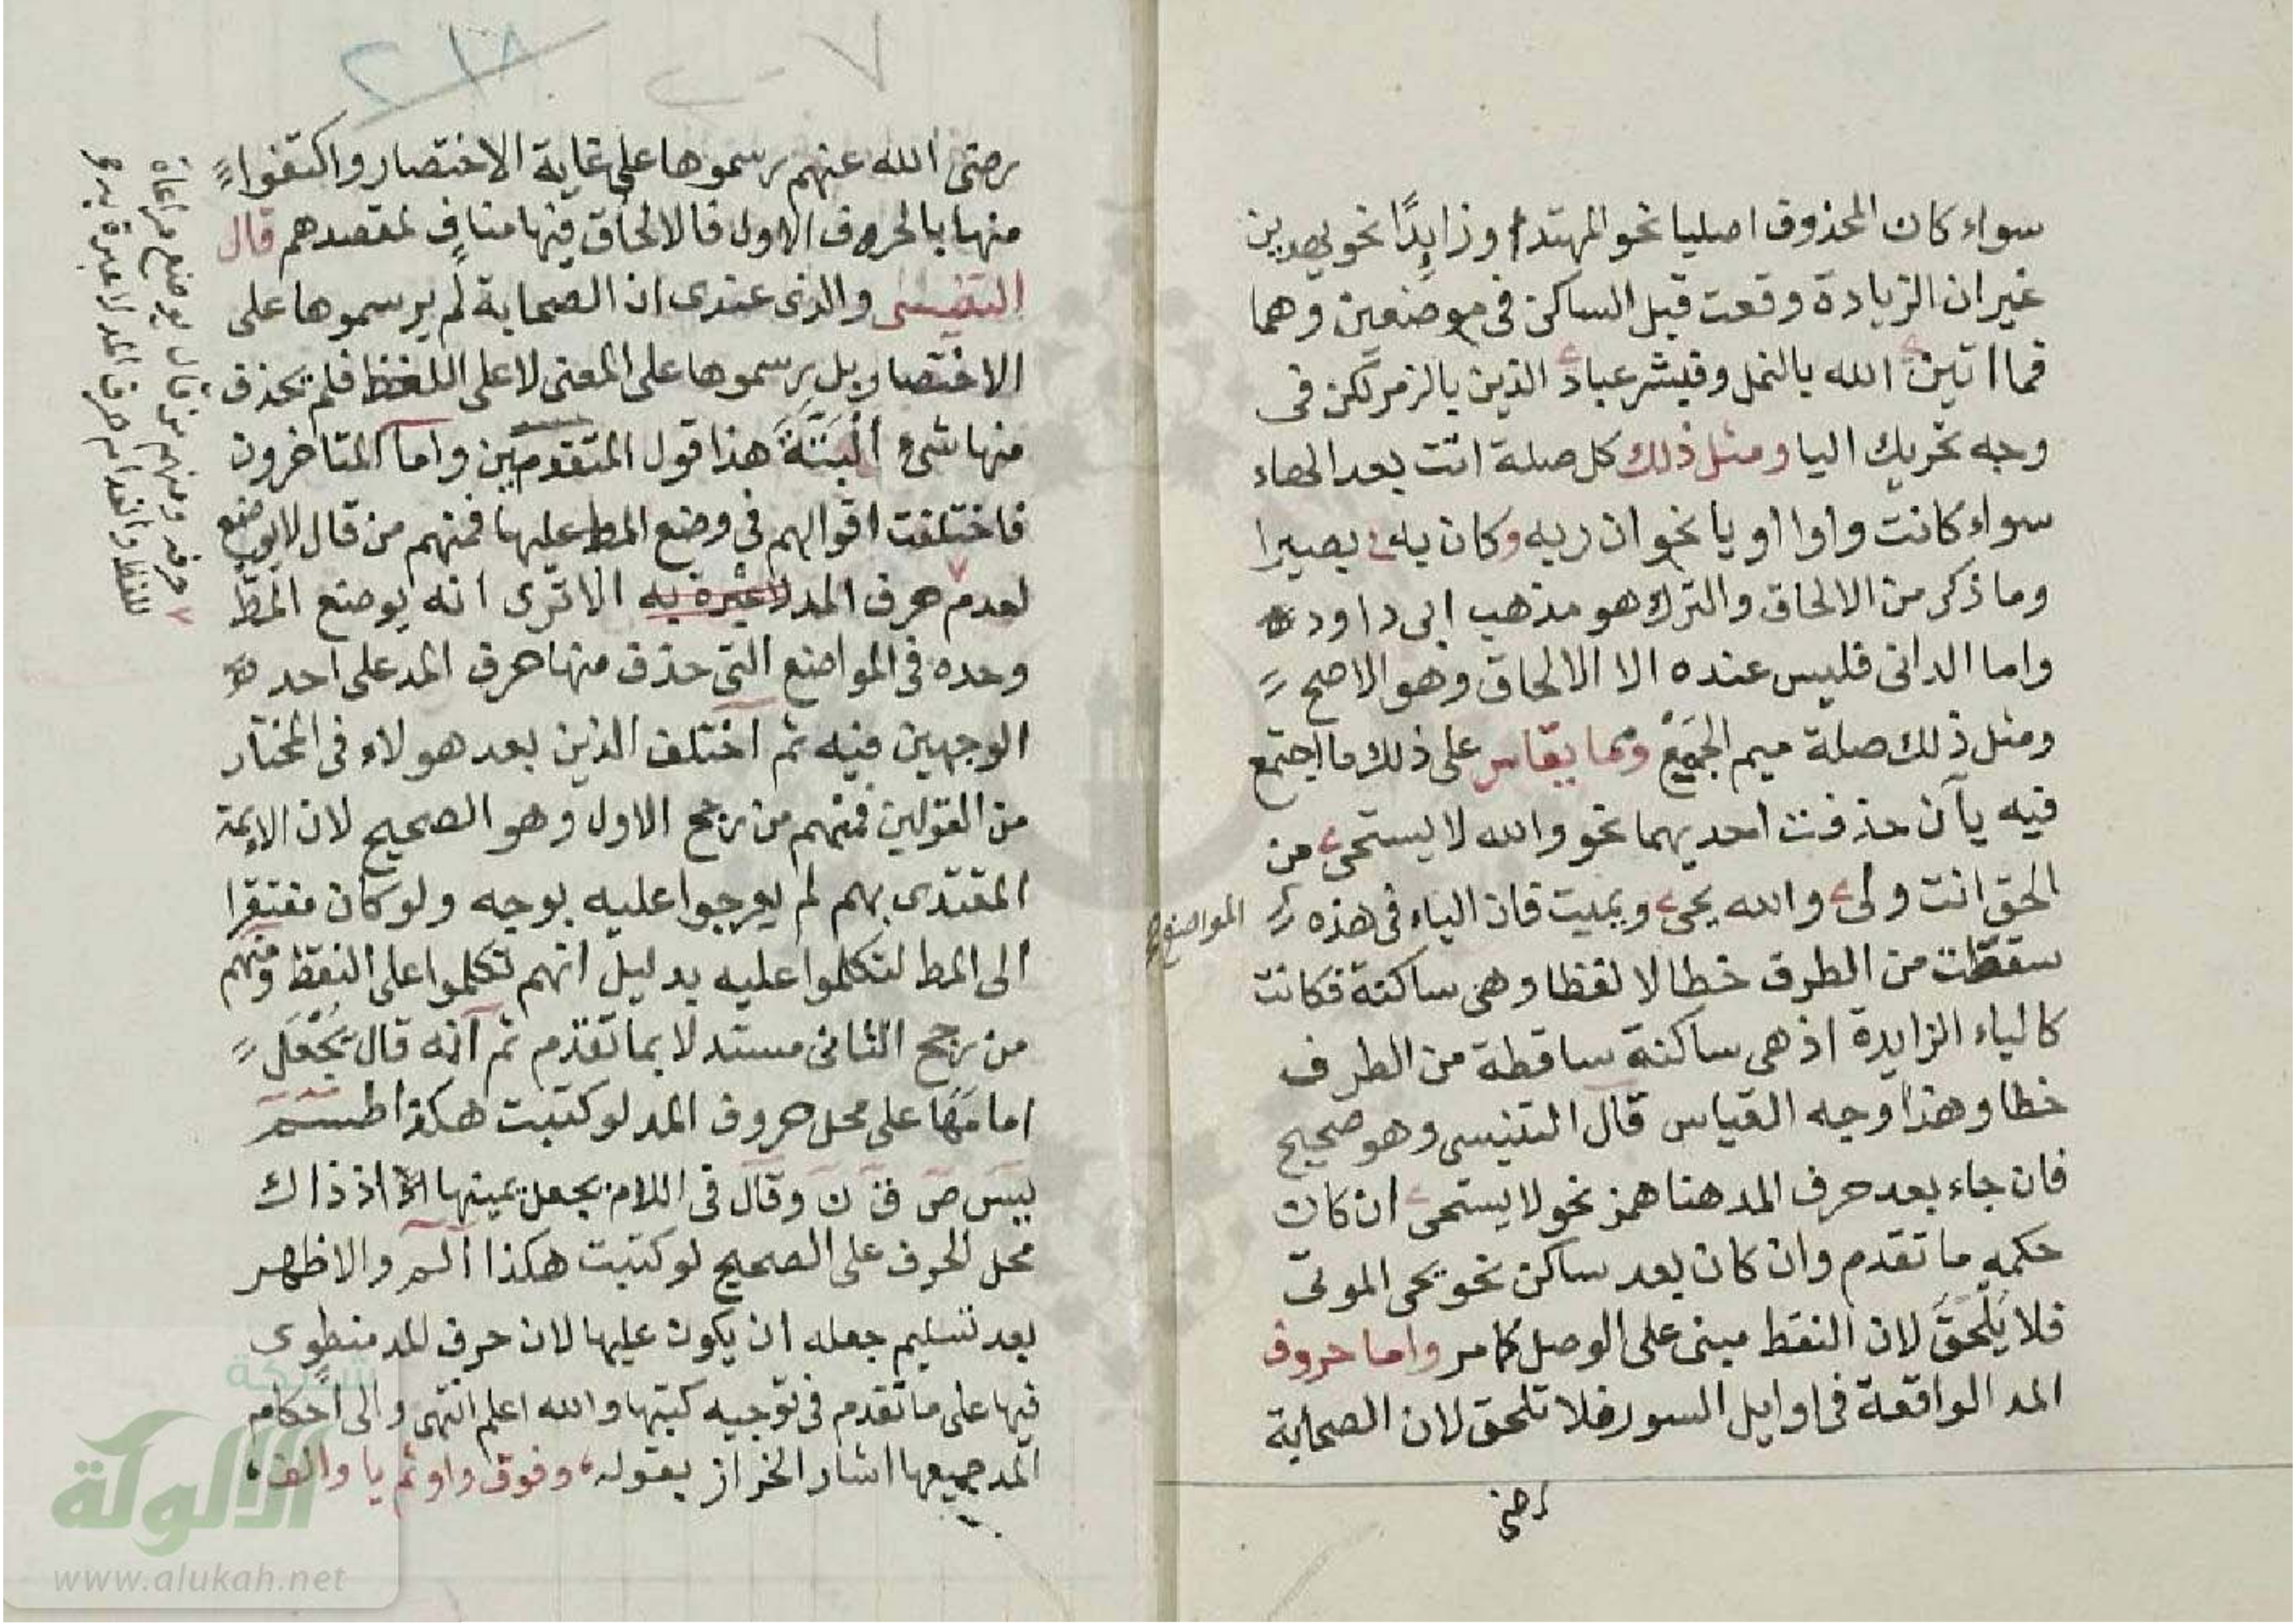 سواء كان المحذوف اصليا نحو المهتد او زايدًا نحو يهدين
غير ان الزيادة وقعت قبل الساكن فى موضعين وهما
فما اتين ے الله بالنمل وفبشر عباد ے الذين بالزمر لكن فى
وجه تحريك اليا ومثل ذلك كل صلة اتت بعد الهاء
سواء كانت واوا او يا نحو ان ربه و كان به ے بصيرا
وما ذكر من الالحاق والترك هو مذهب ابى داود
واما الدانى فليس عنده الا الالحاق وهو الاصح
ومثل ذلك صلة ميم الجمع ومما يقاس على ذلك ما اجتمع
فيه يآن حذفت احديهما نحو والله لا يستحى ے من
الحق انت ولى ے والله يحى ے ويميت فان الياء فى هذه
المواضع
سقطت من الطرف خطا لا لفظا وهى ساكنة فكانت
كالياء الزايدة اذ هى ساكنة ساقطة من الطرف
خطا وهذا وجه القياس قال التنيسى وهو صحيح
فان جاء بعد حرف المد هنا همز نحو لا يستحى ے ان كان
حكمه ما تقدم وان كان بعد ساكن نحو يحى الموتى
فلا يَلْحَقُ لان النقط مبنى على الوصل كما مر واما حروف
المد الواقعة فى اوايل السور فلا تلحق لان الصحابة
رضى
٢١٨
٢٠٧
رضى الله عنهم رسموها على غاية الاختصار واكتفوا
منها بالحروف الاول فالالحاق فيها منافٍ لمقصدهم قال
التنيسى والذى عندى ان الصحابة لم يرسموها على
الاختصار بل رسموها على المعنى لا على اللفظ فلم يحذف
منها شىء البَتَّةَ هذا قول المتقدمين واما المتاخرون
فاختلفت اقوالهم فى وضع المط عليها فمنهم من قال لا يوضع
لعدم حرف المد لا عبرة به الا ترى انه يوضع المط
٧ حرفه ومنهم من قال يوضع مراعاة
للفظ وانعدام حرف المد لا عبرة به
وحده فى المواضع التى حذف منها حرف المد على احد
الوجهين فيه ثم اختلف الذين بعد هولاء فى المختار
من القولين فمنهم من رجح الاول وهو الصحيح لان الايمة
المقتدى بهم لم يعرجوا عليه بوجه ولو كان مفتقرا
الى المط لتكلموا عليه بدليل انهم تكلموا على النقط ومنهم
من رجح الثانى مستدلا بما تقدم ثم انه قال يُجْعَل
امامها على محل حروف المد لو كتبت هكذا طسم
يس ص ق ن وقال فى اللام يجعل يمينها اذ ذاك
محل الحرف على الصحيح لو كتبت هكذا الم والاظهر
بعد تسليم جعله ان يكون عليها لان حرف المد منطوى
فيها على ما تقدم فى توجيه كتبها والله اعلم انتهى والى احكام
المد جميعها اشار الخراز بقوله وفوق واو ثم يا والف
شبكة
الألوكة
www.alukah.net